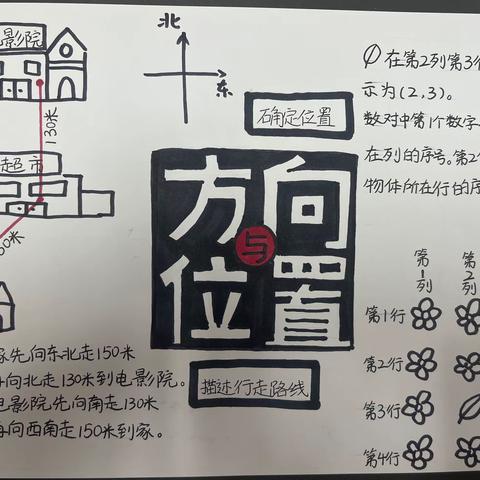 影院
130米
超市
50米
先向东北走150米
向北走130米到电影院。
影院先向南走130米
向西南走150米到家。
北
东
确定位置
方向
与
位置
描述行走路线
在第2列第3行
示为(2,3)。
数对中第1个数字
在列的序号。第2
物体所在行的序
第1列
第2列
第1行
第2行
第3行
第4行